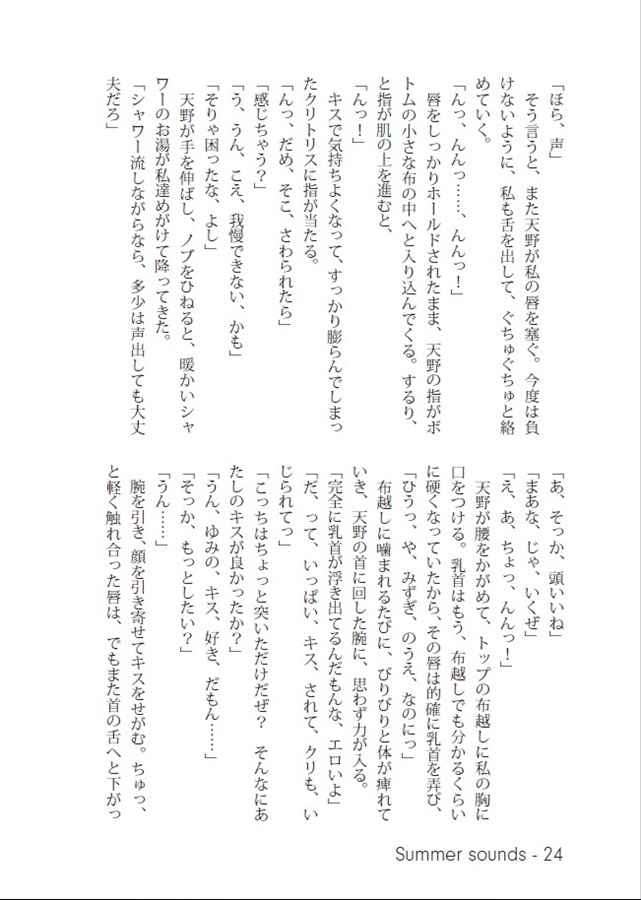 「ほら、声」
そう言うと、また天野が私の唇を塞ぐ。今度は負
けないように、私も舌を出して、ぐちゅぐちゅと絡
めていく。
「んっ、んんっ……、んんっ！」
唇をしっかりホールドされたまま、天野の指がボ
トムの小さな布の中へと入り込んでくる。するり、
と指が肌の上を進むと、
「んっ！」
キスで気持ちよくなって、すっかり膨らんでしまっ
たクリトリスに指が当たる。
「んっ、だめ、そこ、さわられたら」
「感じちゃう？」
「う、うん、こえ、我慢できない、かも」
「そりゃ困ったな、よし」
天野が手を伸ばし、ノブをひねると、暖かいシャ
ワーのお湯が私達めがけて降ってきた。
「シャワー流しながらなら、多少は声出しても大丈
夫だろ」
「あ、そっか、頭いいね」
「まあな、じゃ、いくぜ」
「え、あ、ちょっ、んんっ！」
天野が腰をかがめて、トップの布越しに私の胸に
口をつける。乳首はもう、布越しでも分かるくらい
に硬くなっていたから、その唇は的確に乳首を弄び、
「ひうっ、や、みずぎ、のうえ、なのにっ」
布越しに噛まれるたびに、びりびりと体が痺れて
いき、天野の首に回した腕に、思わず力が入る。
「完全に乳首が浮き出てるんだもんな、エロいよ」
「だ、って、いっぱい、キス、されて、クリも、い
じられてっ」
「こっちはちょっと突いただけだぜ？　そんなにあ
たしのキスが良かったか？」
「うん、ゆみの、キス、好き、だもん……」
「そっか、もっとしたい？」
「うん……」
腕を引き、顔を引き寄せてキスをせがむ。ちゅっ、
と軽く触れ合った唇は、でもまた首の舌へと下がっ
Summer sounds - 24